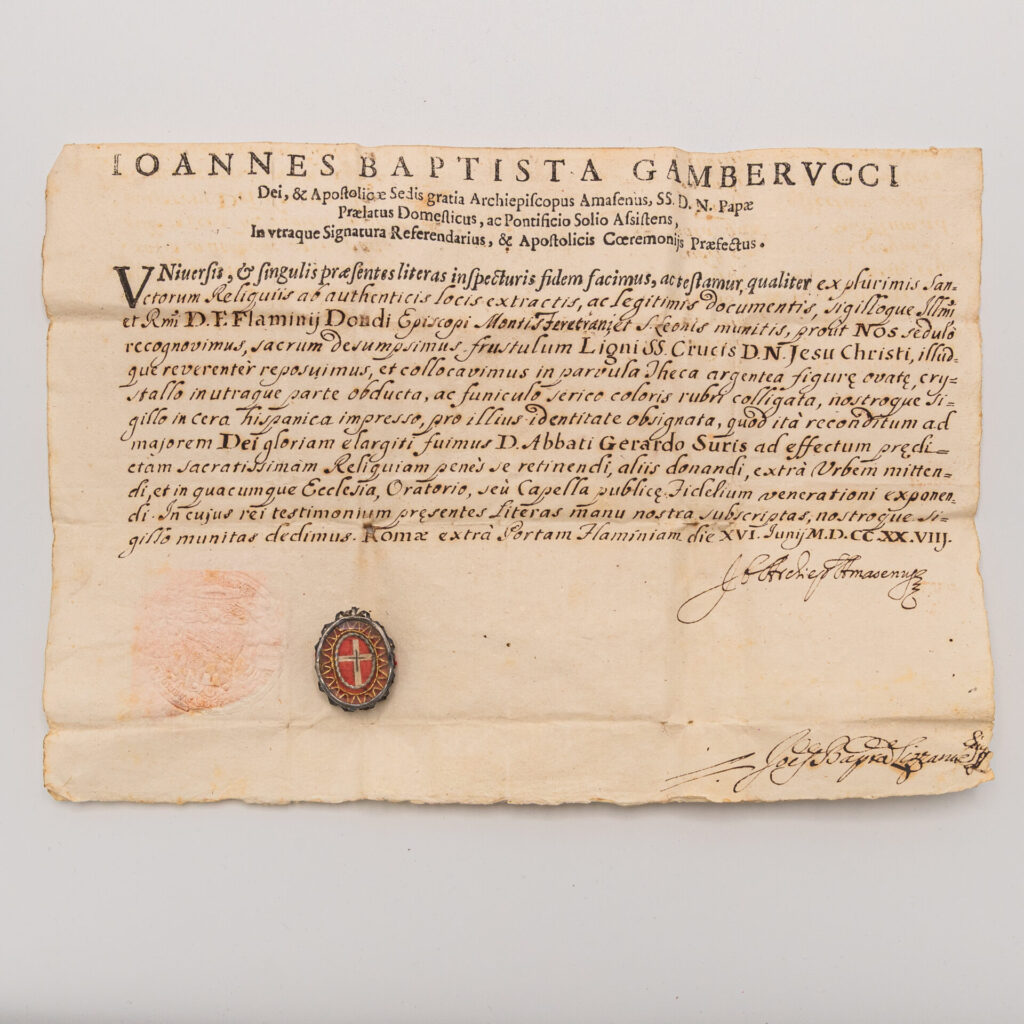 IOANNES BAPTISTA GAMBERVCCI
Dei, & Apostolicæ Sedis gratia Archiepiscopus Amasenus, SS. D. N. Papæ
Prælatus Domesticus, ac Pontificio Solio Assistens,
In vtraque Signatura Referendarius, & Apostolicis Cœremonijs Præfectus.
VNiversis, & singulis præsentes literas inspecturis fidem facimus, ac testamur, qualiter ex plurimis San=
ctorum Reliquiis ab authenticis locis extractis, ac legitimis documentis, sigilloque Illm̃i
et Rm̃i D. F. Flaminij Dondi Episcopi Montis Feretrani, et S. Leonis munitis, prout NOS sedulò
recognovimus, sacrum desumpsimus frustulum Ligni SS. Crucis D. N. Jesu Christi, illud=
que reverenter reposuimus, et collocavimus in parvula Theca argentea figurę ovatę, cry=
stallo in utraque parte obducta, ac funiculo serico coloris rubri colligata, nostroque si=
gillo in cera hispanica impresso, pro illius identitate obsignata, quod ità reconditum ad
majorem Dei gloriam elargiti fuimus D. Abbati Gerardo Suris ad effectum prędi=
ctam sacratissimam Reliquiam penès se retinendi, aliis donandi, extrà Urbem mitten=
di, et in quacumque Ecclesia, Oratorio, seù Capella publicę Fidelium venerationi exponen=
di. In cujus rei testimonium pręsentes Literas manu nostra subscriptas, nostroque si=
gillo munitas dedimus. Romæ extrà Portam Flaminiam die XVI. Junij M.D.CC.XX.VIII.
Archiep. Amasenus